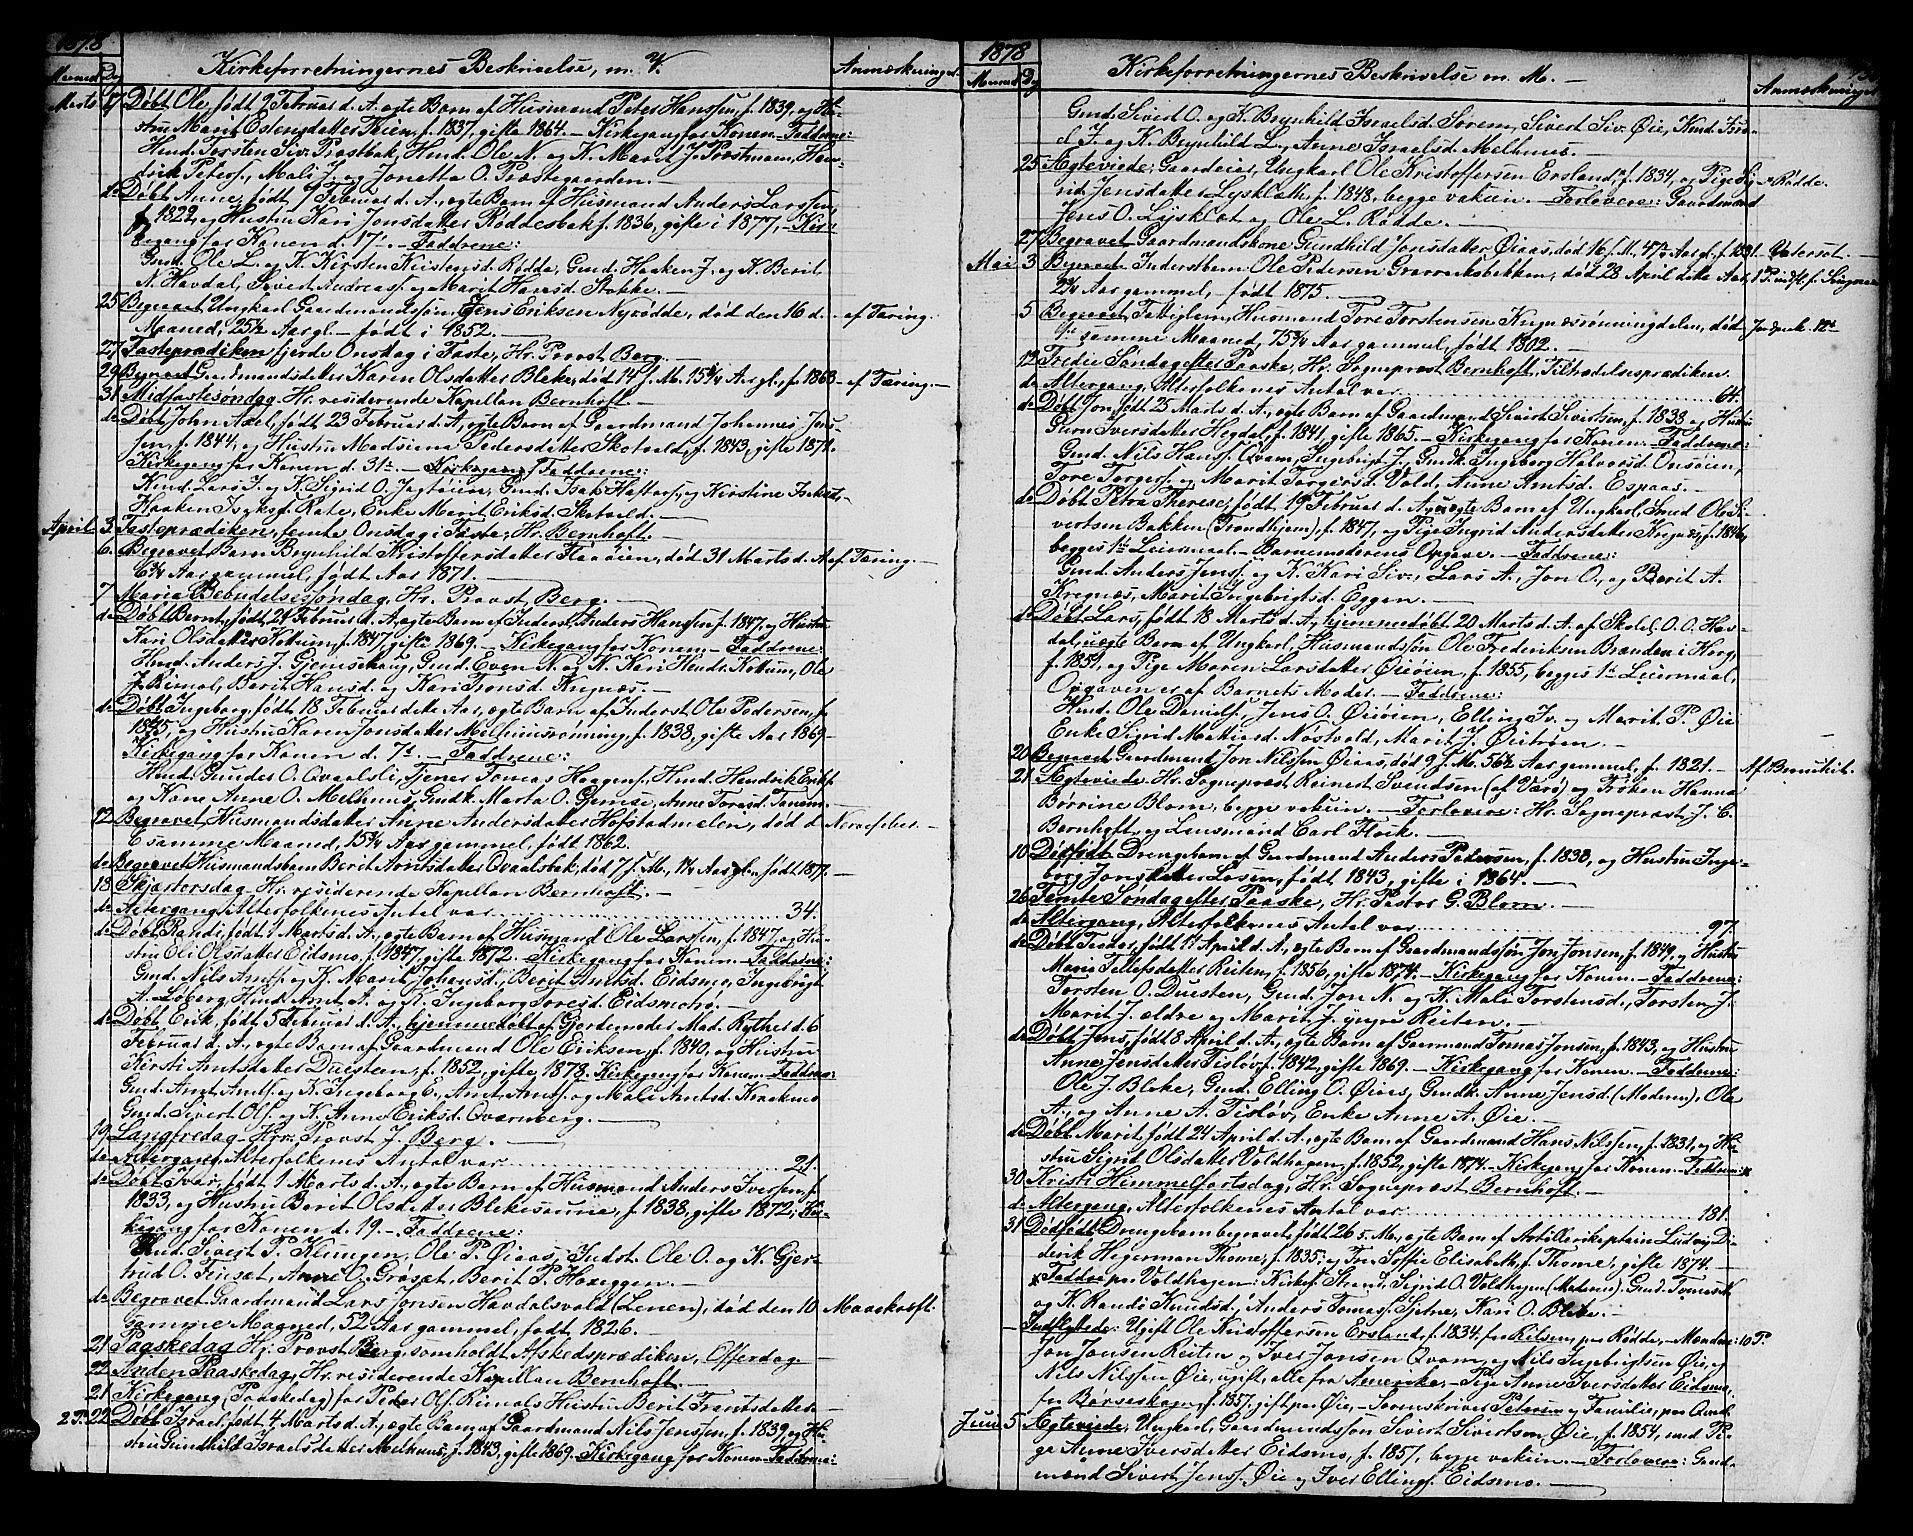 1878
Maaned Dag Kirkeforretningernes Beskrivelse, m. V. Anmærkninger.
Marts 17 Døbt Ole, født 9 Februar d. A., ægte Barn af Husmand Peter Hanssen, f. 1839, og Hu-
stru Marit Estensdatter Skein, f. 1837, gifte 1864. – Kirkegang for Konen. – Faddrene:
Husd. Torsten Siv. Præstbak, Husd. Ole N. og K. Marit J. Præstmarn, Hen-
drik Peters., Mali J. og Jonetta O. Præstegaarden. –
do Døbt Anne, født 7 Februar d. A., ægte Barn af Husmand Anders Larssen,
f. 1822, og Hustru Kari Jonsdatter Røddesbak f. 1836, gifte i 1877, – Kir-
kegang for Konen d. 17de. – Faddrene:
Gmd. Ole L. og K. Kirsten Kristensd. Rødde, Gmd. Haaken J. og K. Berit
N. Havdal, Sivert Andreas. og Marit Hansd. Stokke. –
25 Begravet Ungkarl Gaardmandssøn Jens Eriksen Nyrødde, død den 16 d. af Tæring.
Maaned, 25½ Aar gl. – født i 1852. –
27 Fasteprædiken fjerde Onsdag i Faste, Hr. Provst Berg. –
29 Begravet Gaardmandsdatter Karen Olsdatter Bleke, død 14 f. M. 15¼ Aar gl., f. 1863 – af Tæring. –
31 Midfastesøndag Hr. residerende Kapellan Bernhoft. –
do Døbt John Axel, født 23 Februar d. A., ægte Barn af Gaardmand Johannes Jens-
sen, f. 1844, og Hustru Marsiena Pedersdatter Skotvold, f. 1843, gifte 1871.
Kirkegang for Konen d. 31te – Faddrene:
Hmd. Lars J. og K. Sigrid O. Jegtøien, Gmd. Isak Haftors. og Kirstine Isaksd.
Haaken Isaks. f. Rate, Enke Marit Eriksd. Skotvold. –
April 3 Fasteprædiken, femte Onsdag i Faste, Hr. Bernhoft. –
6 Begravet Barn Brynhild Kristoffersdatter Flaaøien, død 31 Marts d. A. af Tæring. –
6¾ Aar gammel, født Aar 1871. –
7 Maria Bebudelsessøndag, Hr. Provst Berg. –
do Døbt Bernt, født 24 Februar d. A., ægte Barn af Inderst Anders Hanssen f. 1847, og Hustru
Kari Olsdatter Kotum, f. 1847 gifte 1869. – Kirkegang for Konen. – Faddrene:
Husd. Anders J. Gjemsehaug, Gmd. Even A. og K. Kari Hansd. Kotum, Ole
J. Rimol, Berit Hansd. og Kari Tronsd. Kregnæs. –
do Døbt Ingeborg, født 18 Februar dette Aar, ægte Barn af Inderst Ole Pedersen, f.
1845, og Hustru Karen Jonsdatter Melhuusrønning, f. 1838, gifte Aar 1869 –
Kirkegang for Konen d. 7de. – Faddrene:
Husd. Gunder O. Qvaalsli, Tjener Tomas Haagens., Husd. Hendrik Eriks.
og Kone Anne O. Melhuus, Gmdk. Marta O. Gjemse, Anne Toresd. Tanem.
12 Begravet Husmandsdatter Anne Andersdatter Hofstadmelen, død d. Nervefeber. –
6 samme Maaned, 15¾ Aar gammel, født 1862.
do Begravet Husmandsbarn Berit Arntsdatter Qvaalsbak, død 7 s. M., 1¼ Aar gl., født 1877. –
18 Skjærtorsdag Hr. residerende Kapellan Bernhoft. –
do Altergang, Alterfolkenes Antal var 34.
do Døbt Randi, født 1 Marts d. A., ægte Barn af Husmand Ole Larssen, f. 1847, og Hu-
stru Eli Olsdatter Eidsmo, f. 1847, gifte 1872. Kirkegang for Konen. – Faddrene:
Gmd. Nils Arnts. og K. Marit Johansd., Berit Arntsd. Eidsmo, Ingebrigt
A. Loberg, Husd. Arnt A. og K. Ingeborg Toresd. Eidsmotrø. –
do Døbt Erik, født 5 Februar d. A., hjemmedøbt af Gjordemoder Mad. Ryther d. 6
Februar d. A., ægte Barn af Gaardmand Ole Eriksen, f. 1840, og Hustru
Kirsti Arntsdatter Duesten, f. 1852, gifte 1873. Kirkegang for Konen. Faddrene:
Gmd. Arnt Arnts. og K. Ingeborg E., Arnt Arnts. og Mali Arntsd. Kraakmo
Gmd. Sivert Ols. og K. Anne Eriksd. Qvernberg. –
19 Langfredag Hr. Provst J. Berg. –
do Altergang, Alterfolkenes Antal var 21.
do Døbt Ivar, født 1 Marts d. A., ægte Barn af Husmand Anders Iversen f.
1833, og Hustru Berit Olsdatter Blekesaunie, f. 1838, gifte 1872, Kir-
kegang for Konen d. 19. – Faddrene:
Husd. Sivert P. Klungen, Ole P. Øiaas, Indst. Ole O. og K. Gjer-
trud O. Teigset, Anne O. Grøset, Berit P. Hoxeggen. –
do Begravet Gaardmand Lars Jonsen Havdalsvold (Lenen), død den 10 Mavekræft.
samme Maaned, 52 Aar gammel, født 1826. –
21 Paaskedag Hr. Provst Berg, som holdt Afskedsprædiken, Offerdag. –
22 Anden Paaskedag, Hr. residerende Kapellan Bernhoft. –
21 Kirkegang (Paaskedag) for Peder Ols. Rimols Hustru Berit Trantsdatter. –
2.P. 22 Døbt Israel, født 4 Marts d. A., ægte Barn af Gaardmand Nils Jenssen, f. 1839, og Hu-
stru Gundhild Israelsdatter Melhuus, f. 1843, gifte 1869. Kirkegang for Konen. Faddrene:
1878
Maaned Dag Kirkeforretningernes Beskrivelse m. M. – Anmærkninger
Gmd. Sivert O. og K. Brynhild Israelsd. Sørem, Sivert Siv. Øie, Kmd. Isra-
el J. og K. Brynhild L., Anne Israelsd. Melhuus. –
25 Ægteviede: Gaardeier, Ungkarl Ole Kristoffersen Ersland, f. 1834, og Pige Sig- Rødde.
rid Jensdatter Lyskløth, f. 1848, begge vakcin. – Forlovere: Gaardmænd
Jens O. Lyskløt og Ole L. Rødde. –
27 Begravet Gaardmandskone Gundhild Jonsdatter Øiaas, død 16 s. M., 47¼ Aar gl. f. 1831. Vatersot. –
Mai 3 Begravet Inderstbarn Ole Pedersen Gravraaksbekken, død 28 April dette Aar,
2¾ Aar gammel, født 1875. –
5 Begravet Fattiglem, Husmand Tore Torstensen Kregnæsrønningdelen, død Jordpaak. 12te
1ste samme Maaned, 75¾ Aar gammel, født 1802. –
12 Tredie Søndag efter Paaske, Hr. Sognepræst Bernhoft. Tiltrædelsesprædiken.
do Altergang, Alterfolkenes Antal var 64.
do Døbt Jon, født 25 Marts d. A., ægte Barn af Gaardmand Sivert Sivertsen, f. 1833 og Hustru
Guru Iversdatter Hegdal, f. 1841, gifte 1865. – Kirkegang for Konen. – Faddrene:
Gmd. Nils Hans. Qvam, Ingebrigt J., Gmdk. Ingeborg Halvorsd. Onsøien,
Tore Torgers. og Marit Torgersd. Vold, Anne Arntsd. Espaas. –
do Døbt Petra Therese, født 19 Februar d. A., uægte Barn af Ungkarl, Smed Ole Si-
vertsen Bakken (Trondhjem), f. 1847, og Pige Ingrid Andersdatter Kregnæs, f. 1846,
begges 1ste Leiermaal. – Barnemoderens Opgave. – Faddrene:
Gmd. Anders Jens. og K. Kari Siv., Lars A., Jon O., og Berit A.
Kregnæs, Marit Ingebrigtsd. Eggen. –
do Døbt Lars, født 18 Marts d. A., hjemmedøbt 20 Marts d. A. af Skolel. O. O. Hav-
dal, uægte Barn af Ungkarl, Husmandssøn Ole Frederiksen Brænden i Horg,
f. 1851, og Pige Maren Larsdatter Øiøien, f. 1855, begges 1ste Leiermaal,
Opgaven er af Barnets Moder. – Faddrene:
Husd. Ole Daniels., Jens O. Øiøien, Elling Iv. og Marit P. Øie
Enke Sigrid Mattiasd. Nostvold, Marit J. Øietrøen. –
20 Begravet Gaardmand Jon Nilssen Øiaas, død 9 s. M. 56½ Aar gammel, f. 1821. – Af Brnskit.
21 Ægteviede Hr. Sognepræst Reinert Svendsen (af Værø) og Frøken Hanna
Børrine Blom, begge vakcin. – Forlovere: Hr. Sognepræst J. C.
Bernhoft, og Lensmand Carl Flock. –
10 Dødfødt Drengebarn af Gaardmand Anders Pedersen, f. 1830, og Hustru Inge-
borg Jonsdatter Losen, født 1843, gifte i 1864. –
26 Femte Søndag efter Paaske, Hr. Pastor G. Blom. –
do Altergang, Alterfolkenes Antal var 97.
do Døbt Torder, født 17 April d. A., ægte Barn af Gaardmandssøn Jon Jonsen, f. 1849, og Hustru
Marie Tellefsdatter Reiten, f. 1856, gifte 1874. – Kirkegang for Konen. – Faddrene:
Torsten O. Duesten, Gmd. Jon N. og K. Mali Torstensd., Torsten J.
Marit J. ældre og Marit J. yngre Reiten. –
do Døbt Jens, født 8 April d. A., ægte Barn af Gaarmand Tomas Jonsen, f. 1843, og Hustru
Anne Jensdatter Tisløv, f. 1842, gifte 1869. – Kirkegang for Konen. – Faddrene:
Ole J. Bleke, Gmd. Elling O. Øien, Gmdk. Anne Jensd. (Moderen), Ole
A., og Anne A. Tisløv, Enke Anne A. Øie. –
do Døbt Marit, født 24 April d. A., ægte Barn af Gaardmand Hans Nilssen f. 1831, og Hu-
stru Sigrid Olsdatter Voldhagen, f. 1852, gifte 1874. – Kirkegang for Konen. – Faddrene:
30 Kristi Himmelfartsdag, Hr. Sognepræst Bernhoft. –
do Altergang, Alterfolkenes Antal var 181.
31 Dødfødt Drengebarn begravet, født 26 s. M., ægte Barn af Artillerikaptein Ludvig Di-
derik Hegerman Thome, f. 1835, og Fru Soffie Elisabeth, f. Thome, gifte 1874. –
Faddre paa Voldhagen: Kirkes. Strand, Sigrid O. Voldhagen (Moderen), Gmd. Tomas N.
og K. Randi Knudsd., Anders Tomas. Sjetne, Kari O. Bleke. –
Indflyttede: Ugift Ole Kristoffersen Ersland, f. 1834, fra Rilsen, paa Rødde, –
Jon Jonsen Reiten og Iver Jonsen Qvam, og Nils Ingebrigtsen Øie, og
Nils Nilssen Øie, ugift, alle fra Amerika. – Pige Anne Iversdatter Eidsmo,
fra Børseskogn, f. 1857, gift paa Øie, – Sorenskriver Petersen og Familie, paa
Juni 5 Ægteviede, Ungkarl, Gaardmandssøn Sivert Sivertsen Øie, f. 1854, med Pi-
ge Anne Iversdatter Eidsmo, f. 1857, begge vakcin. – Forlovere: Gaard-
mænd Sivert Jens. Øie og Iver Ellings. Eidsmo. –